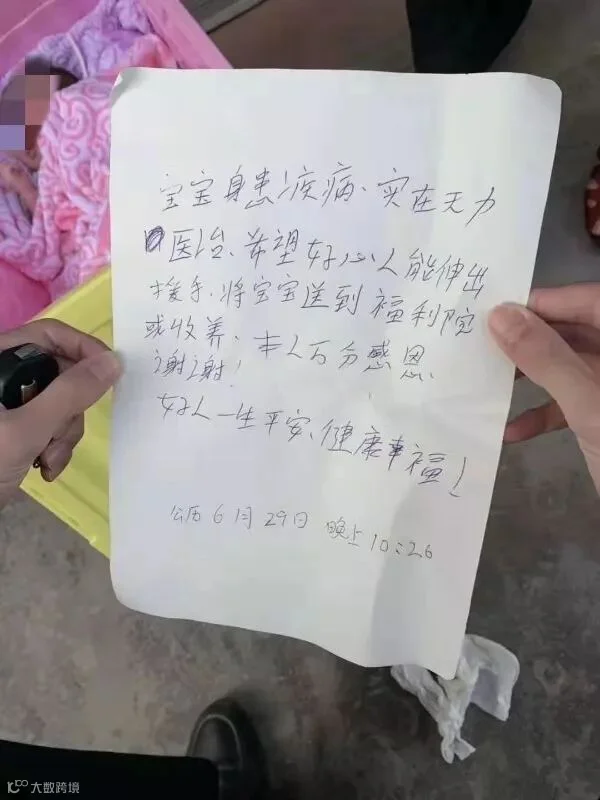 宝宝身患疾病、实在无力
医治、希望好心人能伸出
援手、将宝宝送到福利院
或收养、本人万分感恩、
谢谢!
好人一生平安、健康幸福!
公历6月29日 晚上10:26
大数跨境